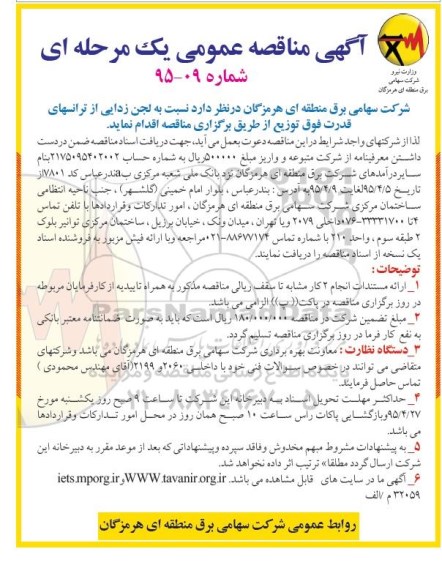 وزارت نیرو
شرکت سهامی
برق منطقه ای هرمزگان
آگهی مناقصه عمومی یک مرحله ای
شماره ۰۹-۹۵
شرکت سهامی برق منطقه ای هرمزگان درنظر دارد نسبت به لجن زدایی از ترانسهای
قدرت فوق توزیع از طریق برگزاری مناقصه اقدام نماید.
لذا از شرکتهای واجد شرایط در این مناقصه دعوت بعمل می آید، جهت دریافت اسناد مناقصه ضمن در دست
داشتن معرفینامه از شرکت متبوعه و واریز مبلغ ۵۰۰۰۰۰ریال به شماره حساب ۲۱۷۵۰۹۵۴۰۲۰۰۲بنام
سایردرآمدهای شرکت برق منطقه ای هرمزگان نزد بانک ملی شعبه مرکزی بندرعباس کد ۷۸۰۱از
تاریخ ۹۵/۴/۵لغایت ۹۵/۴/۹به آدرس : بندرعباس ، بلوار امام خمینی (گلشهر) ، جنب ناحیه انتظامی
ساختمان مرکزی شرکت سهامی برق منطقه ای هرمزگان ، امور تدارکات وقراردادها با تلفن تماس
۴تا ۳۳۳۳۱۷۰۰-۰۷۶داخلی ۲۰۷۹ ویا تهران ، میدان ونک ، خیابان برزیل ، ساختمان مرکزی توانیر بلوک
۲ طبقه سوم ، واحد ۲۱۰ با شماره تماس ۸۸۶۷۷۱۷۴-۰۲۱مراجعه وبا ارائه فیش مزبور به فروشنده اسناد
یک نسخه از اسناد مناقصه را دریافت نمایند.
توضیحات :
۱_ ارائه مستندات انجام ۲ کار مشابه تا سقف ریالی مناقصه مذکور به همراه تاییدیه از کارفرمایان مربوطه
در روز برگزاری مناقصه در پاکت((ب)) الزامی می باشد.
۲_ مبلغ تضمین شرکت در مناقصه ۱۸۰/۰۰۰/۰۰۰ ریال است که باید به صورت ضمانتنامه معتبر بانکی
به نفع کار فرما در روز برگزاری مناقصه تسلیم گردد.
۳_دستگاه نظارت : معاونت بهره برداری شرکت سهامی برق منطقه ای هرمزگان می باشد وشرکتهای
متقاضی می توانند در خصوص سوالات فنی خود با داخلی ۲۰۶۰و ۲۱۹۹(آقای مهندس محمودی )
تماس حاصل فرمایند.
۴_ حداکثر مهلت تحویل اسناد به دبیرخانه این شرکت تا ساعت ۹ صبح روز یکشنبه مورخ
۹۵/۴/۲۷وبازگشایی پاکات راس ساعت ۱۰ صبح همان روز در محل امور تدارکات وقراردادها
می باشد.
۵_ به پیشنهادات مشروط مبهم مخدوش وفاقد سپرده وپیشنهاداتی که بعد از موعد مقرر به دبیرخانه این
شرکت ارسال گردد مطلقا» ترتیب اثر داده نخواهد شد.
۶_ آگهی ما در سایت های قابل مشاهده می باشد. WWW.tavanir.org.ir وiets.mporg.ir
۳۲۰۵۹ م /الف
روابط عمومی شرکت سهامی برق منطقه ای هرمزگان